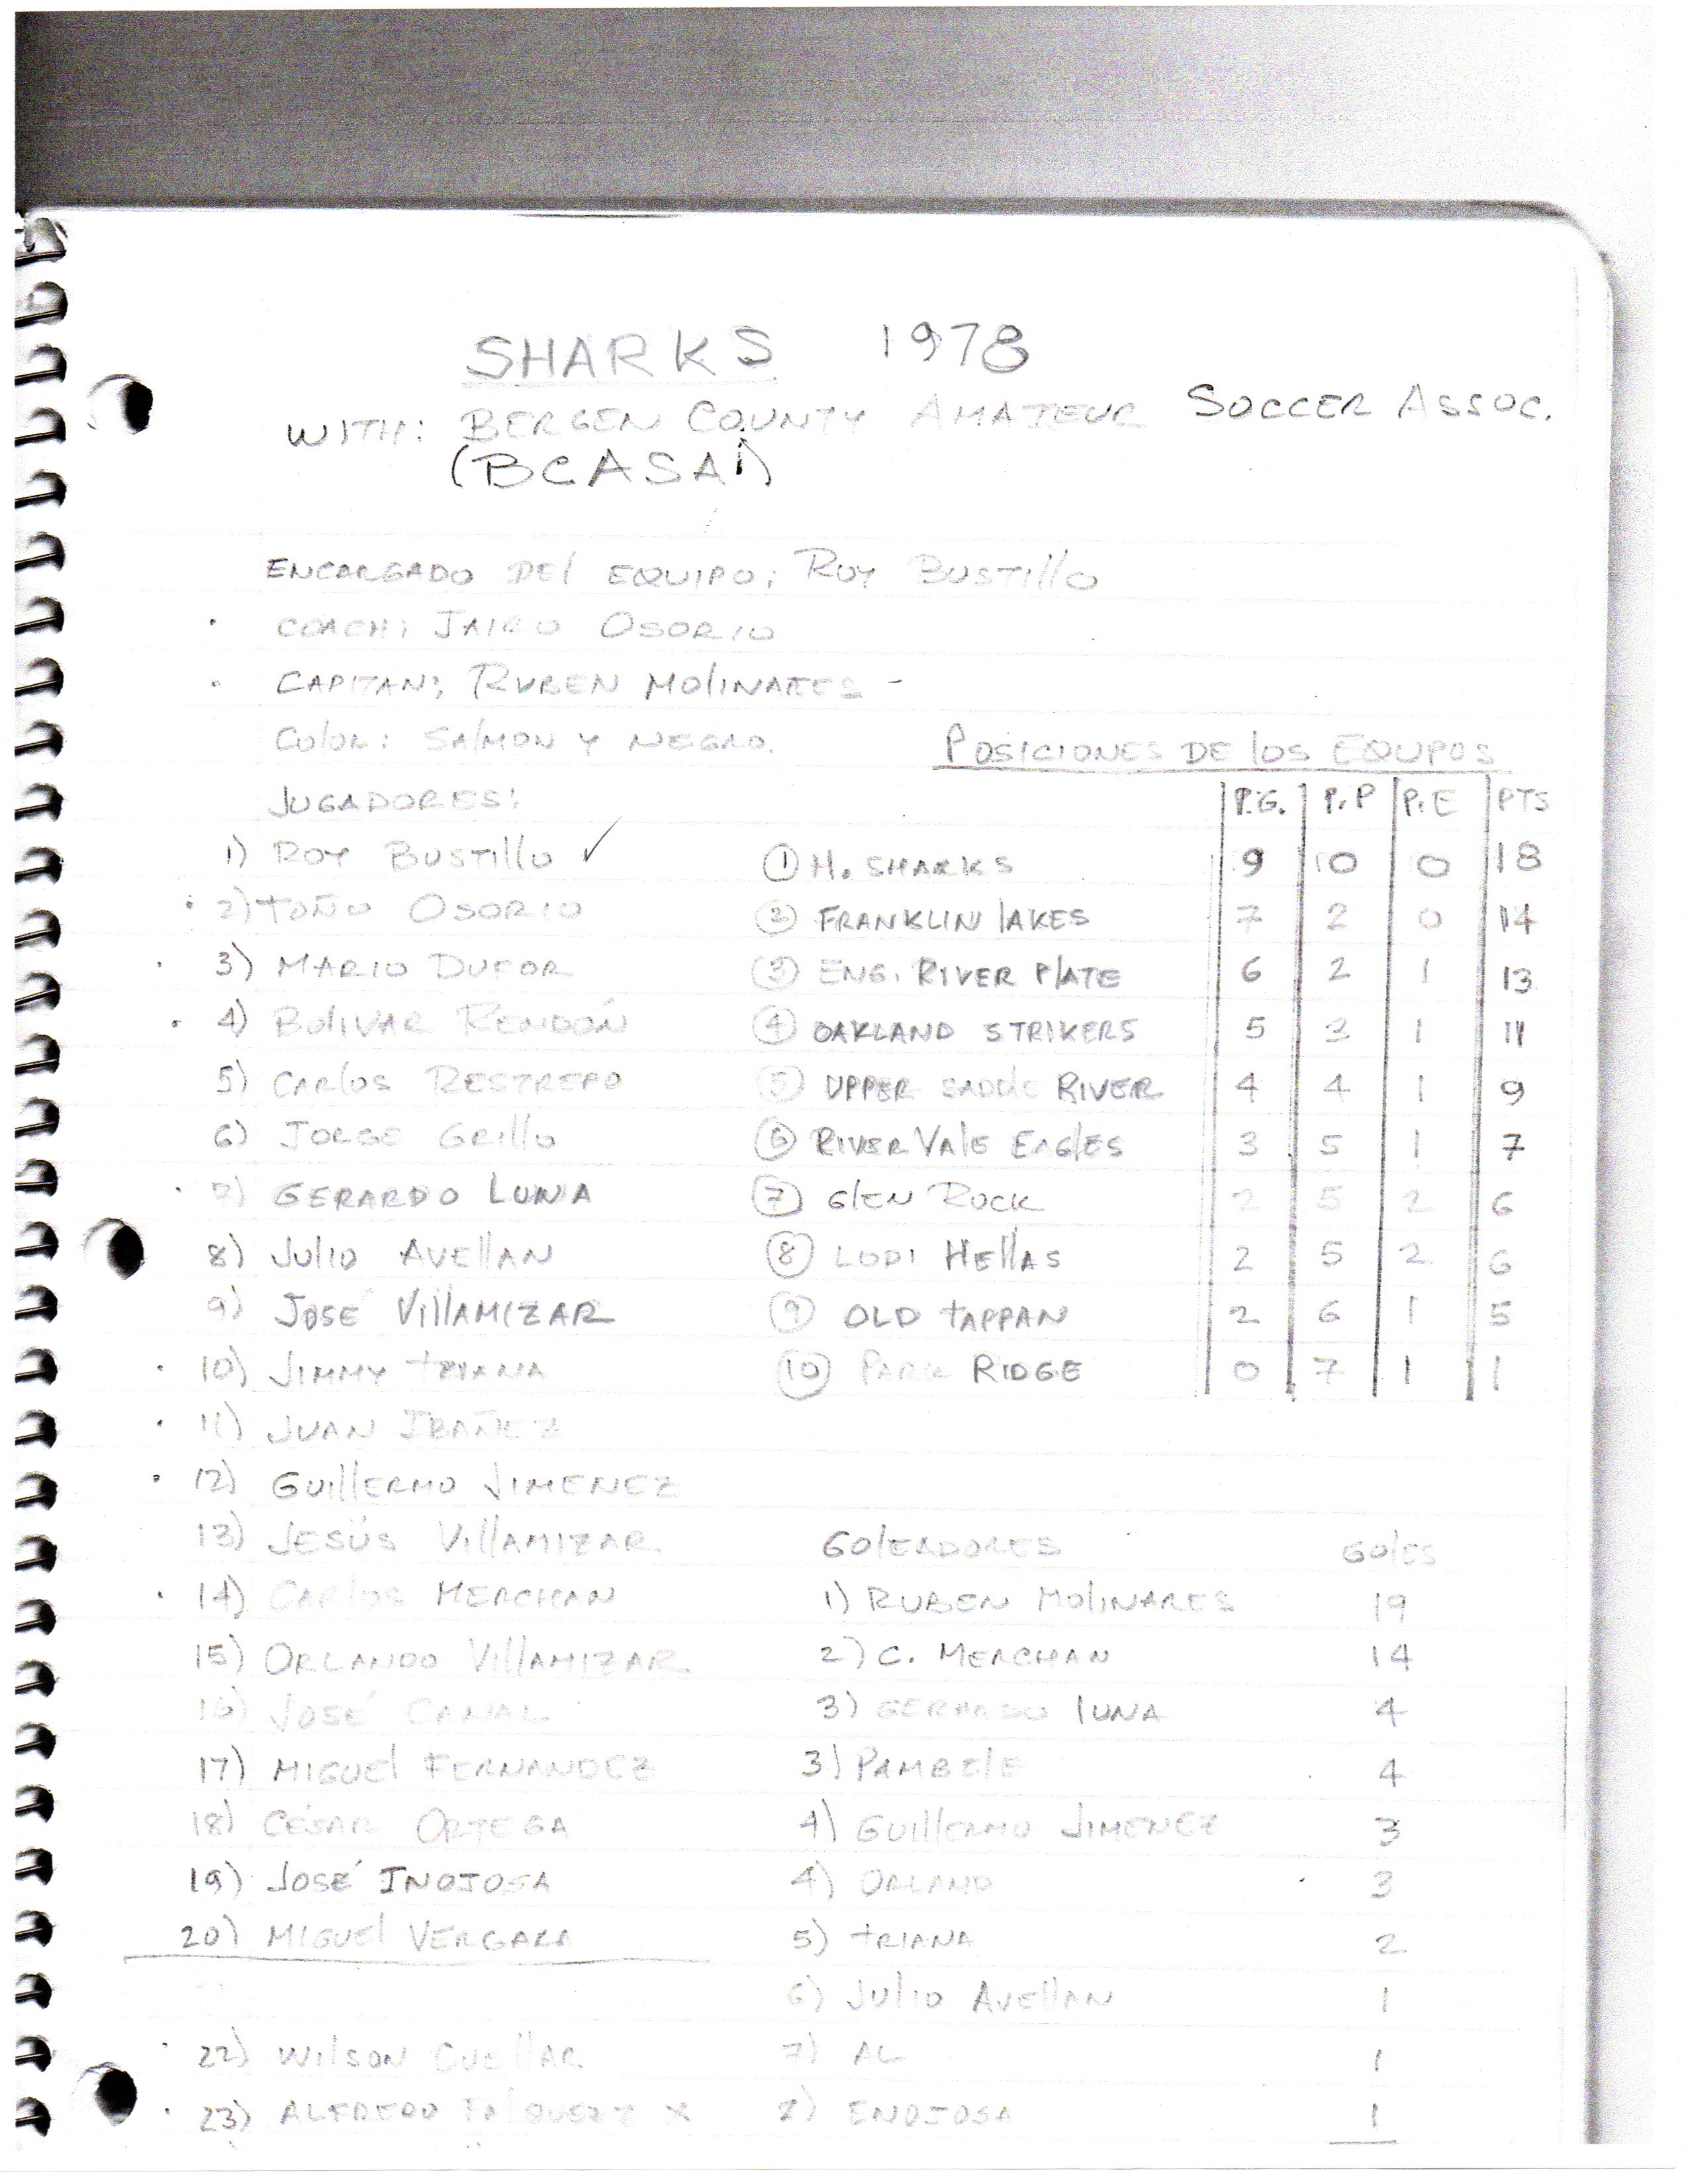 SHARKS 1978
WITH: BERGEN COUNTY AMATEUR SOCCER ASSOC.
(BCASA)
ENCARGADO DEL EQUIPO: ROY BUSTILLO
COACH: JAIRO OSORIO
CAPITAN: RUBEN MOLINARES -
COLOR: SALMON Y NEGRO.
JUGADORES:
1) ROY BUSTILLO ✓
2) TOÑO OSORIO
3) MARIO DUFOR
4) BOLIVAR RENDÓN
5) CARLOS RESTREPO
6) JORGE GRILLO
7) GERARDO LUNA
8) JULIO AVELLAN
9) JOSÉ VILLAMIZAR
10) JIMMY TRIANA
11) JUAN IBAÑEZ
12) GUILLERMO JIMENEZ
13) JESÚS VILLAMIZAR
14) CARLOS MERCHAN
15) ORLANDO VILLAMIZAR
16) JOSÉ CANAL
17) MIGUEL FERNANDEZ
18) CÉSAR ORTEGA
19) JOSÉ INOJOSA
20) MIGUEL VERGARA
22) WILSON CUELLAR
23) ALFREDO X
POSICIONES DE LOS EQUPOS
P.G. P.P P.E PTS
1 H. SHARKS 9 10 0 18
2 FRANKLIN LAKES 7 2 0 14
3 ENG. RIVER PLATE 6 2 1 13
4 OAKLAND STRIKERS 5 3 1 11
5 UPPER SADDLE RIVER 4 4 1 9
6 RIVER VALE EAGLES 3 5 1 7
7 GLEN ROCK 2 5 2 6
8 LODI HELLAS 2 5 2 6
9 OLD TAPPAN 2 6 1 5
10 PARK RIDGE 0 7 1 1
GOLEADORES GOLES
1) RUBEN MOLINARES 19
2) C. MERCHAN 14
3) GERARDO LUNA 4
3) PAMBELE 4
4) GUILLERMO JIMENEZ 3
4) ORLAND 3
5) TRIANA 2
6) JULIO AVELLAN 1
7) AL 1
ENOJOSA 1